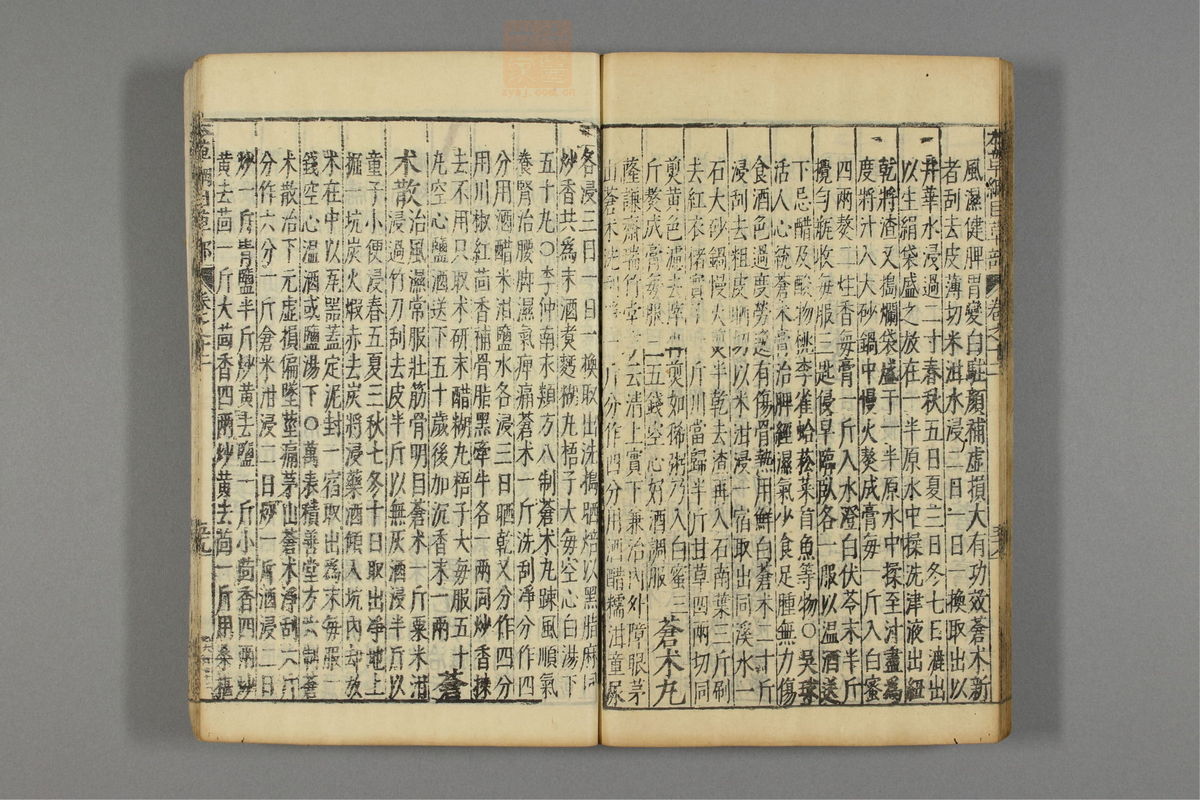 本草綱目草部 卷之十二
風濕健脾胃變白駐顏補虛損大有功效蒼术新
者刮去皮薄切米泔水浸二日一日一換取出以
井華水浸過二寸春秋五日夏三日冬七日漉出
以生絹袋盛之放在一半原水中揉洗津液出紐
乾將渣又搗爛袋盛于一半原水中揉至汁盡爲
度將汁入大砂鍋中慢火熬成膏每一斤入白蜜
四兩熬二炷香每膏一斤入水澄白伏苓末半斤
攪勻瓶收每服三匙侵早臨臥各一服以溫酒送
下忌醋及酸物桃李雀蛤菘菜首魚等物〇吳球
活人心統蒼术膏治脾經濕氣少食足腫無力傷
食酒色過度勞逸有傷骨熱用鮮白蒼术二十斤
浸刮去粗皮晒切以米泔浸一宿取出同溪水一
石大砂鍋慢火煎半乾去渣再入石南葉三斤刷
去紅衣楮實子一斤川當歸半斤甘草四兩切同
煎黃色濾去滓再煎如稀粥乃入白蜜三
斤熬成膏每服三五錢空心好酒調服 蒼术丸
薩謙齋瑞竹堂方云清上實下兼治內外障眼茅
山蒼术洗刮淨一斤分作四分用酒醋糯泔童尿
各浸三日一日一換取出洗搗晒焙以黑脂麻同
炒香共爲末酒煮麪糊丸梧子大每空心白湯下
五十丸〇李仲南永類方八制蒼术丸踈風順氣
養腎治腰脚濕氣痺痛蒼术一斤洗刮淨分作四
分用酒醋米泔鹽水各浸三日晒乾又分作四分
用川椒紅茴香補骨脂黑牽牛各一兩同炒香揀
去不用只取术研末醋糊丸梧子大每服五十
丸空心鹽酒送下五十歲後加沉香末一兩 蒼
术散 治風濕常服壯筋骨明目蒼术一斤粟米泔
浸過竹刀刮去皮半斤以無灰酒浸半斤以
童子小便浸春五夏三秋七冬十日取出淨地上
掘一坑炭火煅赤去炭將浸藥酒傾入坑內却放
术在中以瓦器蓋定泥封一宿取出爲末每服二
錢空心溫酒或鹽湯下〇萬表積善堂方六制蒼
术散治下元虛損偏墜莖痛茅山蒼术淨刮六斤
分作六分一斤倉米泔浸二日炒一斤酒浸二日
炒一斤青鹽半斤炒黃去鹽一斤小茴香四兩炒
黃去茴一斤大茴香四兩炒黃去茴一斤用桑椹